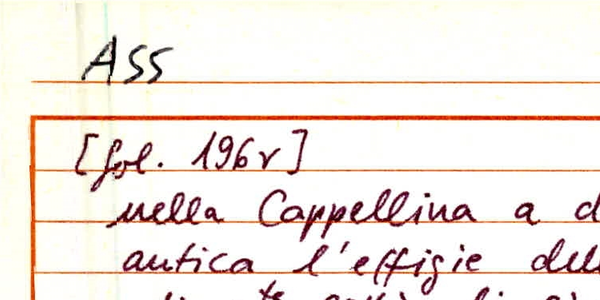 Ass
[fol. 196r]
nella Cappellina a d
antica l'effigie dell